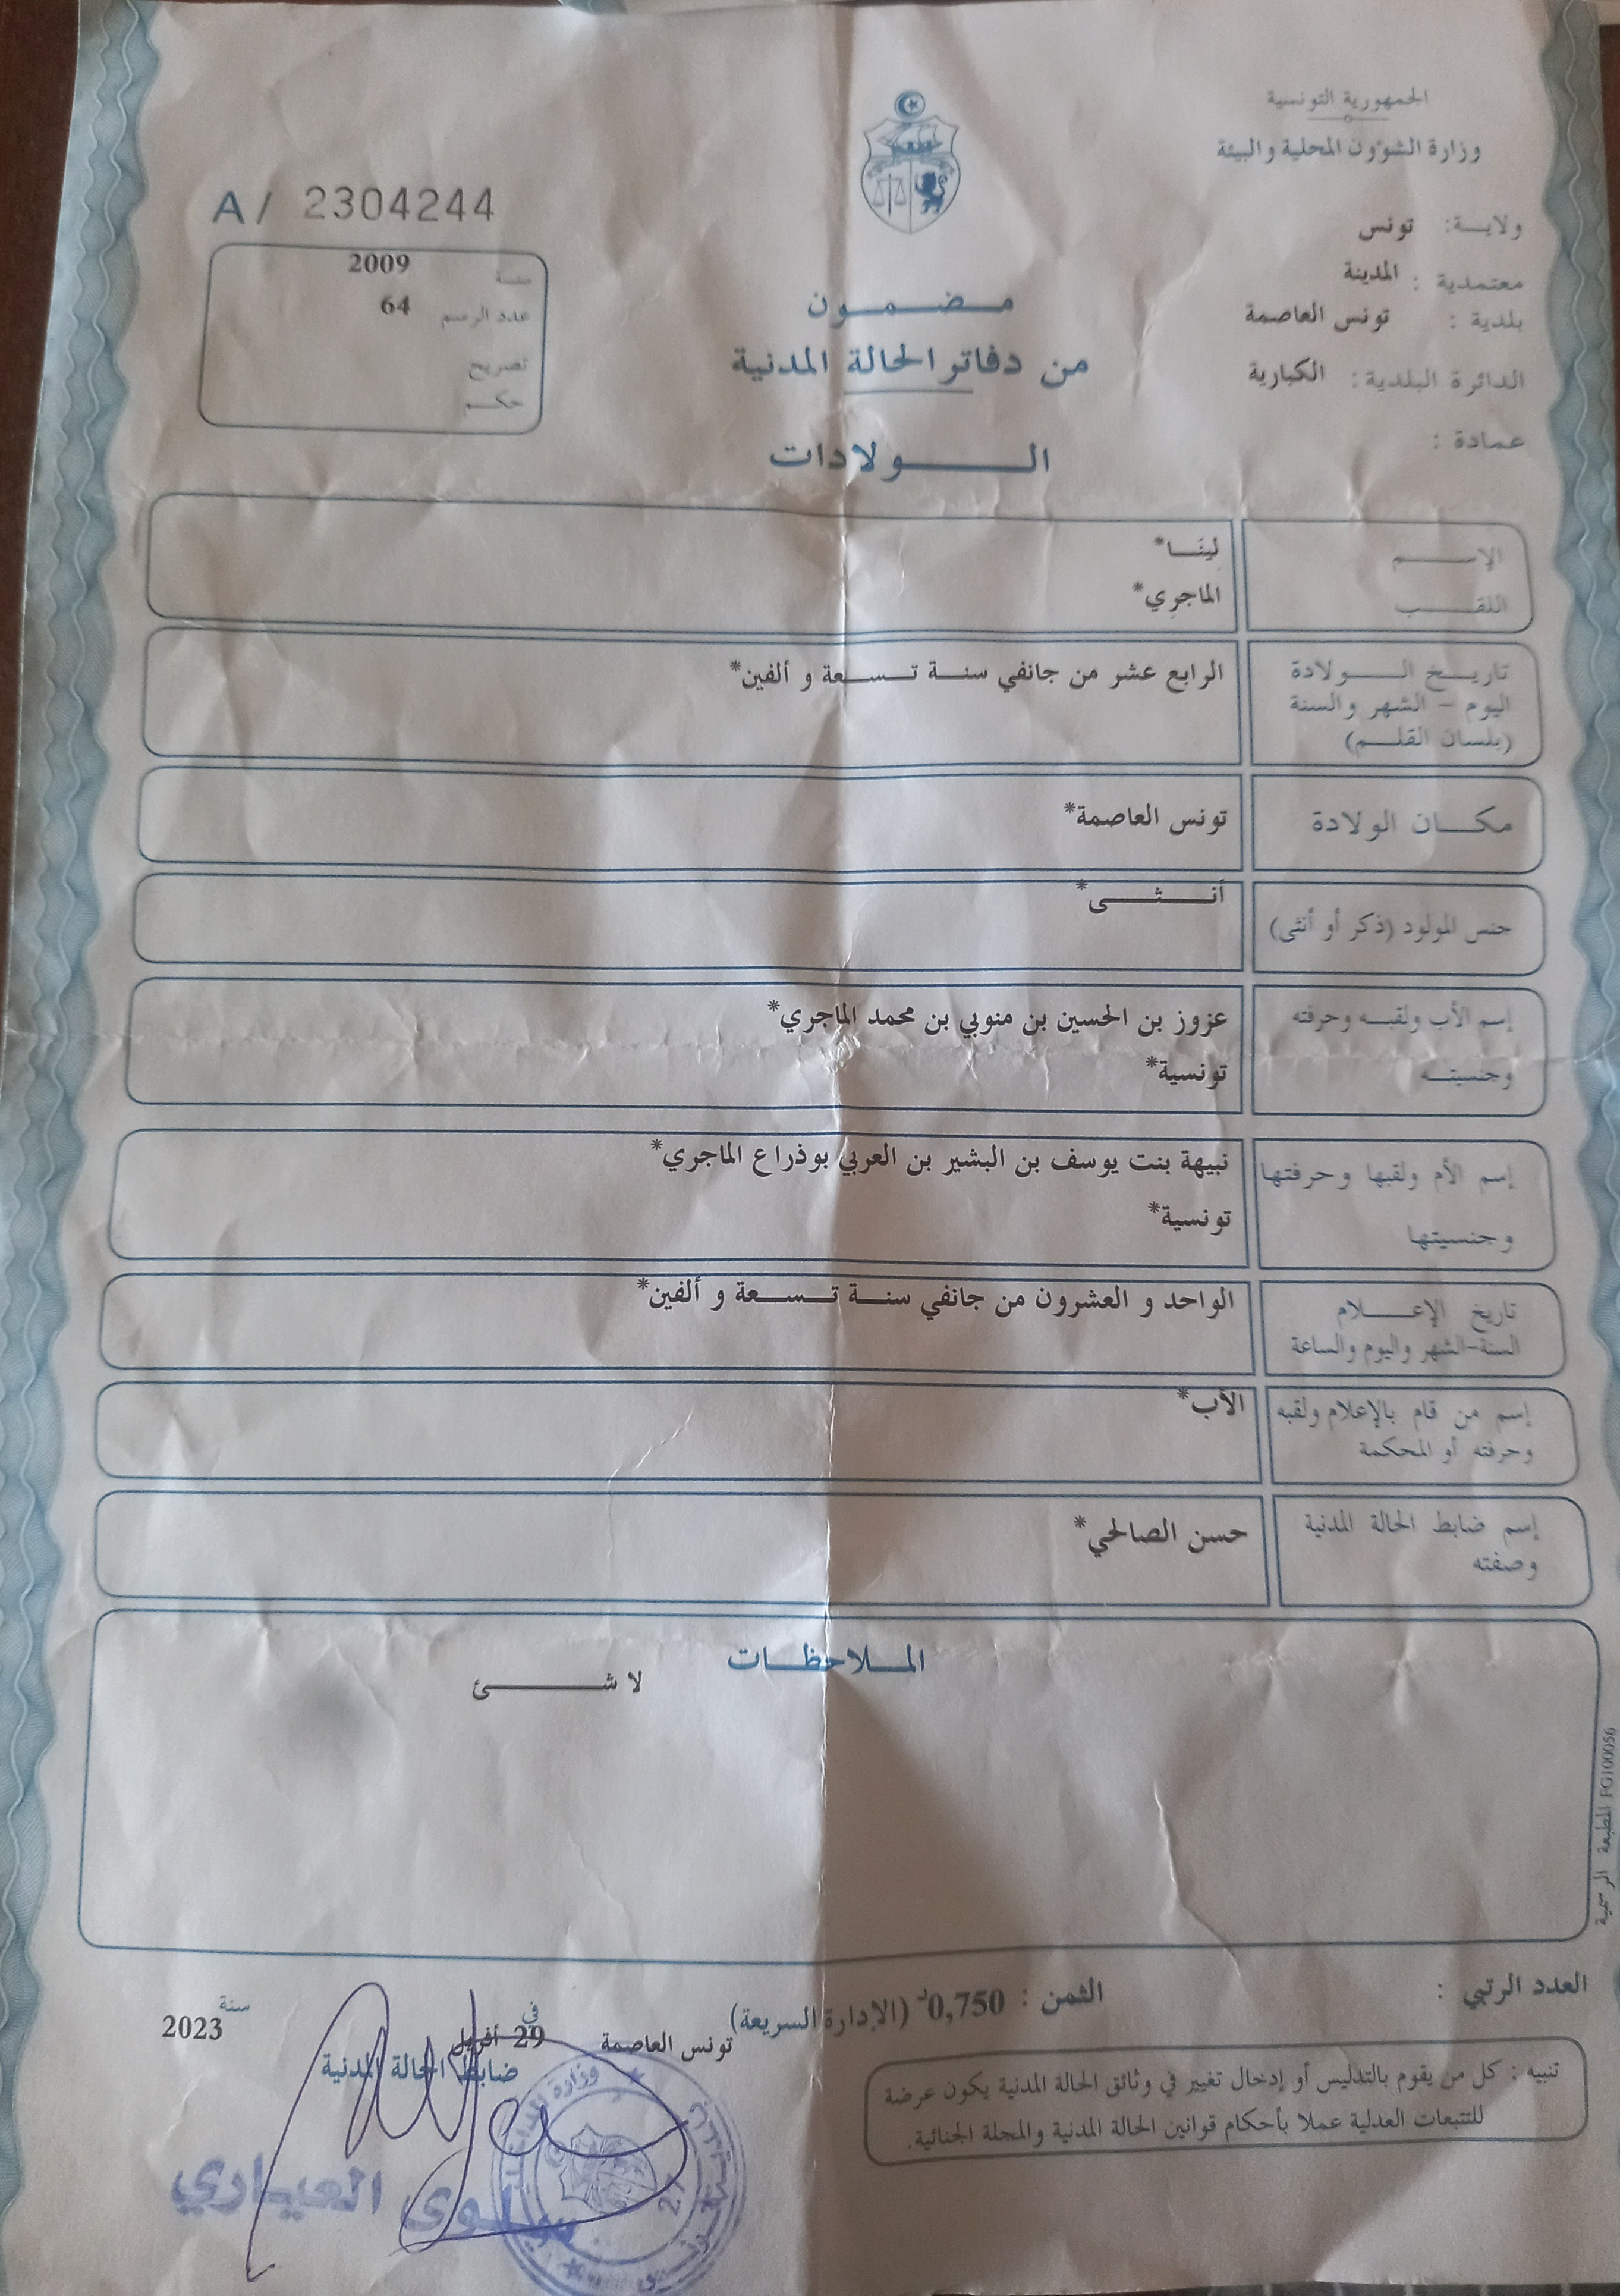 الجمهورية التونسية
وزارة الشؤون المحلية والبيئة
ولايـــة: تونس
معتمدية : المدينة
بلدية : تونس العاصمة
الدائرة البلدية: الكبارية
عمادة :
مـضـمـون
من دفاتر الحالة المدنية
الـــولادات
A/ 2304244
سنة 2009
عدد الرسم 64
تصريح
حكـم
الإســـم لينَـــا*
اللقـــب الماجري*
تاريـخ الـــولادة الرابع عشر من جانفي سنـــة تـــســـعة و ألفين*
اليوم - الشهر والسنة
(بلسان القلـــم)
مكـــان الولادة تونس العاصمة*
جنس المولود (ذكر أو أنثى) أنـــثـــى*
إسم الأب ولقبـــه وحرفته عزوز بن الحسين بن منوبي بن محمد الماجري*
وجنسيتـــه تونسية*
إسم الأم ولقبها وحرفتها نبيهة بنت يوسف بن البشير بن العربي بوذراع الماجري*
وجنسيتها تونسية*
تاريخ الإعـــلام الواحد و العشرون من جانفي سنـــة تـــســـعة و ألفين*
السنة-الشهر واليوم والساعة
إسم من قام بالإعلام ولقبه الأب*
وحرفته أو المحكمة
إسم ضابط الحالة المدنية حسن الصالحي*
وصفته
المـــلاحظـــات
لا شـــئ
المطبعة الرسمية FG100056
العدد الرتبي :
الثمن : 0,750د (الإدارة السريعة)
تونس العاصمة في 29 أفريل سنة 2023
ضابط الحالة المدنية
سلوى العياري
تنبيه : كل من يقوم بالتدليس أو إدخال تغيير في وثائق الحالة المدنية يكون عرضة
للتتبعات العدلية عملا بأحكام قوانين الحالة المدنية والمجلة الجنائية.